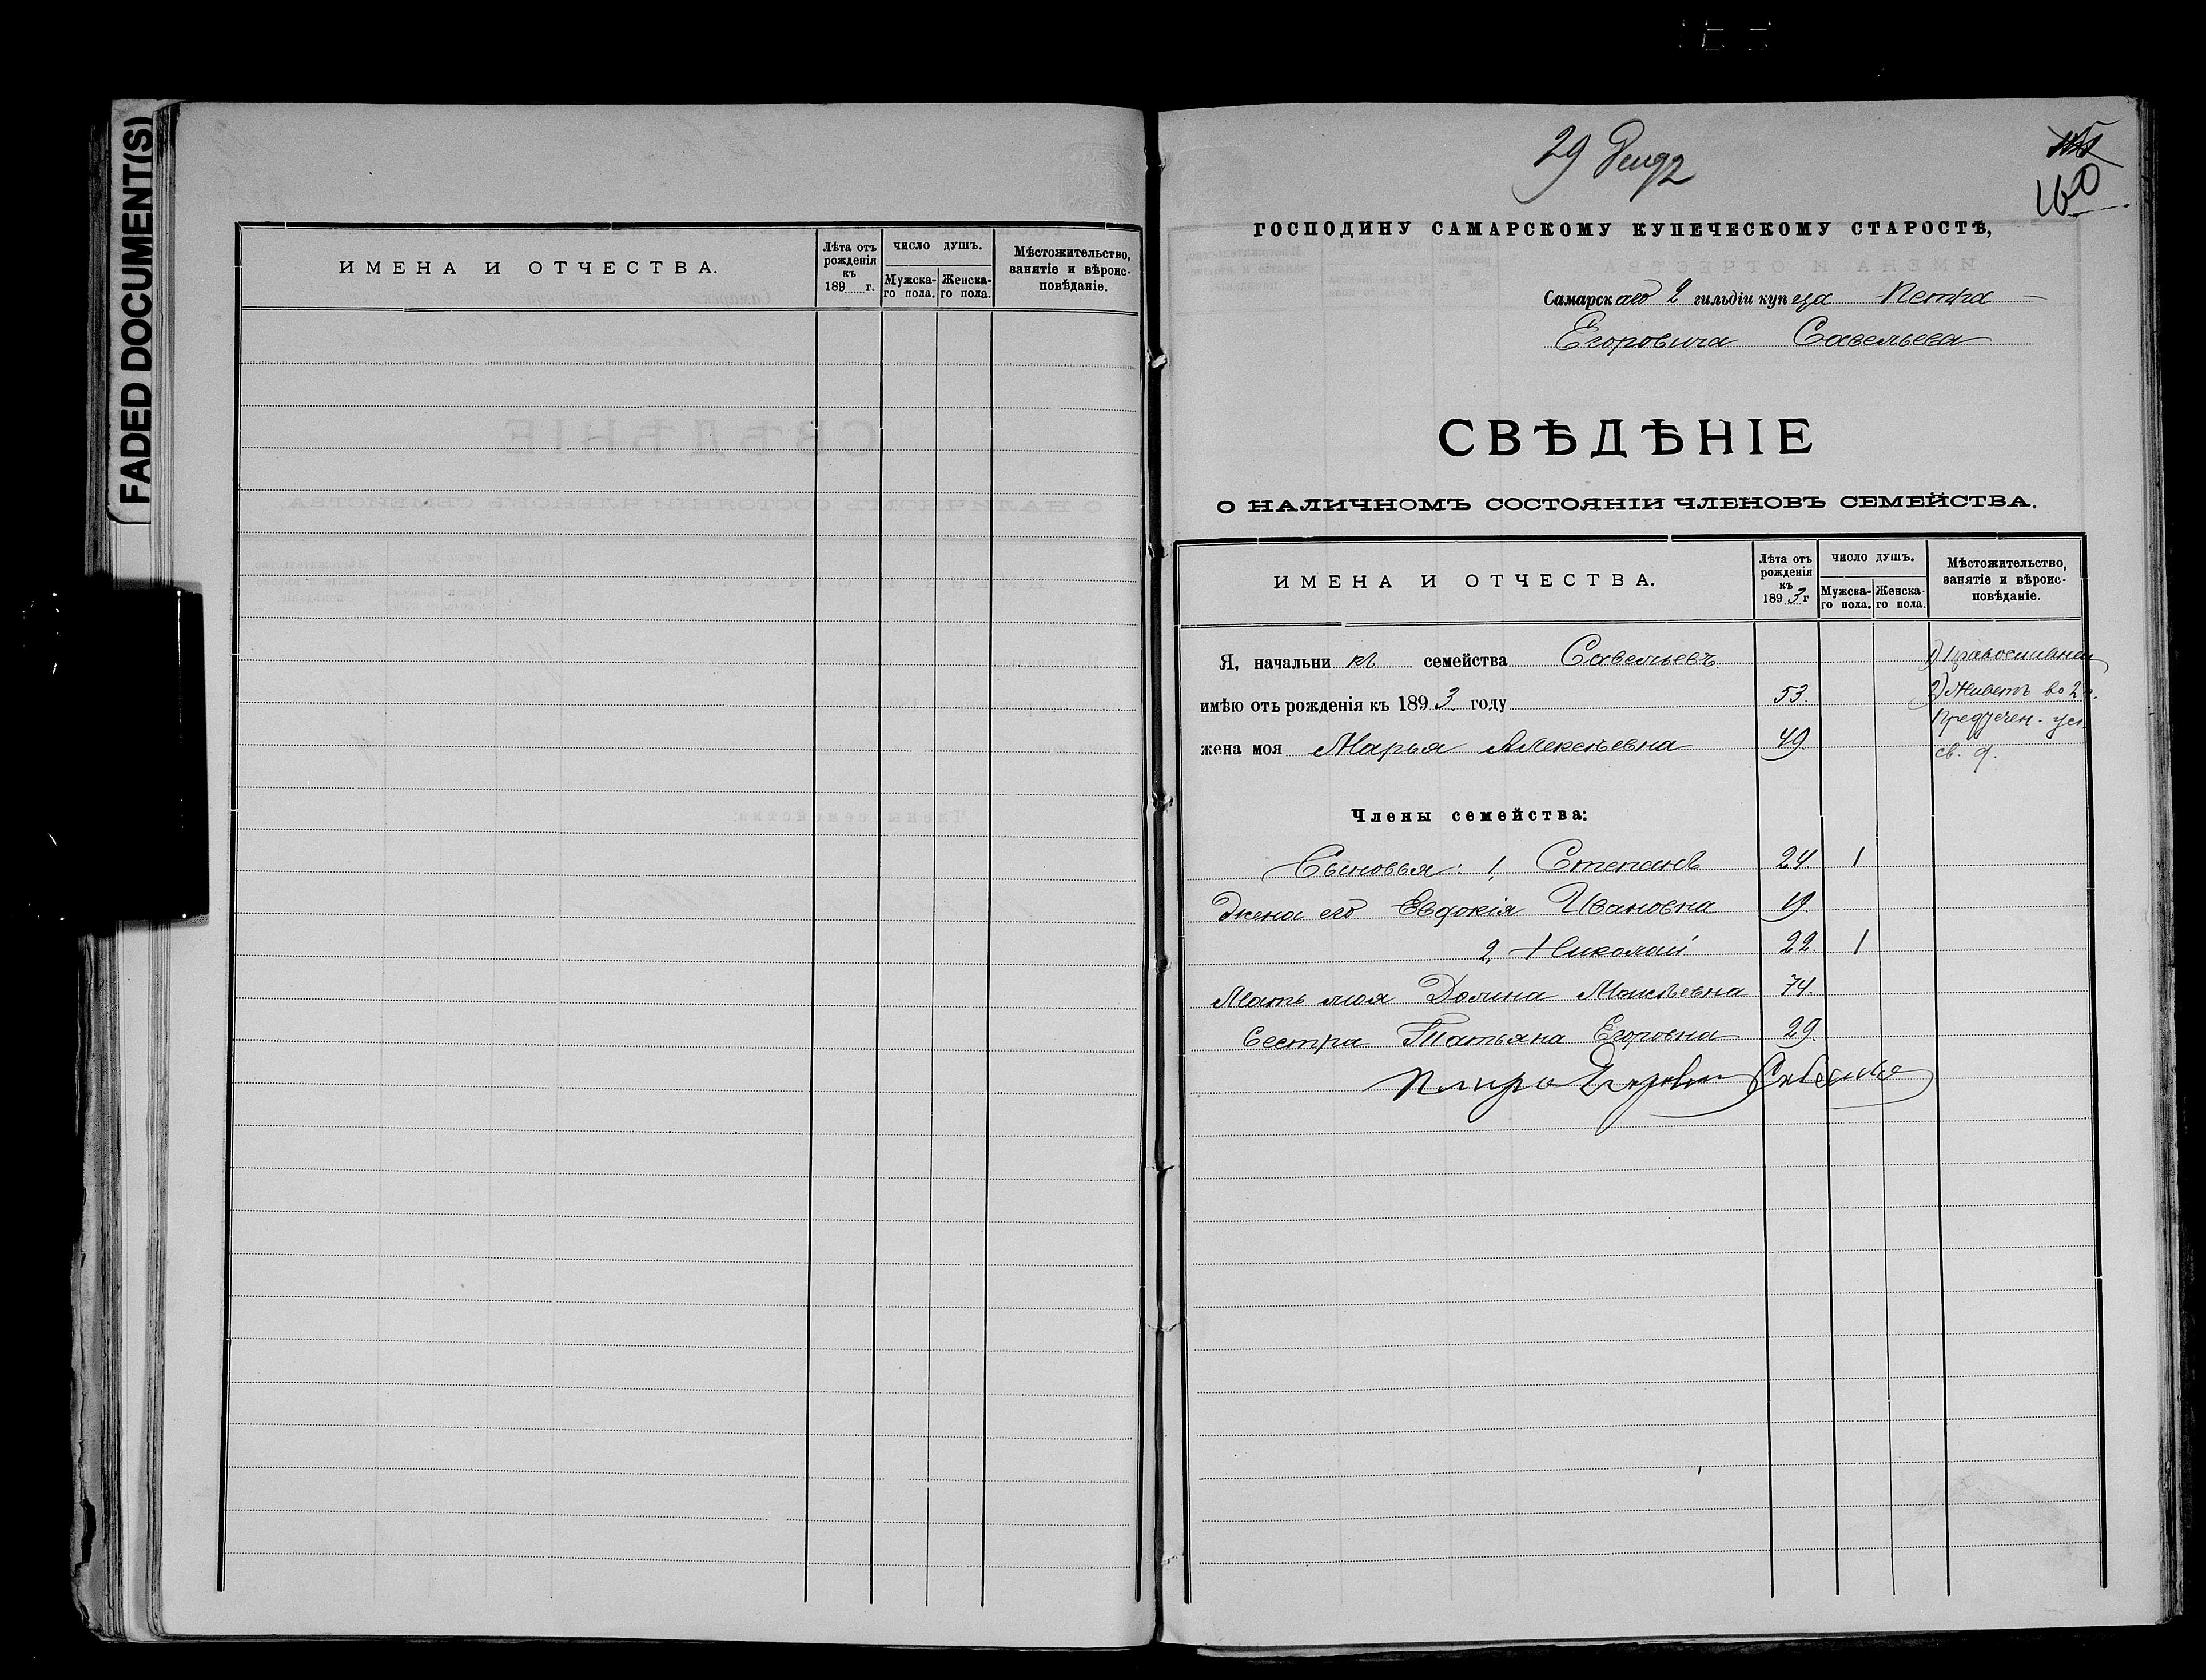 FADED DOCUMENT(S)
ИМЕНА И ОТЧЕСТВА.
Лѣта отъ рожденія къ 189 г.
ЧИСЛО ДУШЪ.
Мужска-го пола.
Женска-го пола.
Мѣстожительство, занятіе и вѣроис-повѣданіе.
29
160
ГОСПОДИНУ САМАРСКОМУ КУПЕЧЕСКОМУ СТАРОСТѢ,
Самарскаго 2 гильдіи купца Петра
Егоровича Савельева
СВѢДѢНІЕ
О НАЛИЧНОМЪ СОСТОЯНІИ ЧЛЕНОВЪ СЕМЕЙСТВА.
ИМЕНА И ОТЧЕСТВА.
Лѣта отъ рожденія къ 1893 г
ЧИСЛО ДУШЪ.
Мужска-го пола.
Женска-го пола.
Мѣстожительство, занятіе и вѣроис-повѣданіе.
Я, начальникъ семейства Савельевъ
имѣю отъ рожденія къ 1893 году 53.
жена моя Марья Алексѣевна 49
1)
2) Живетъ во 2
св. д.
Члены семейства:
Сыновья: 1, Степанъ 24 1
Жена его Евдокія Ивановна 19.
2, Николай 22. 1
Мать моя Домна Моисѣевна 74.
Сестра Татьяна Егоровна 29.